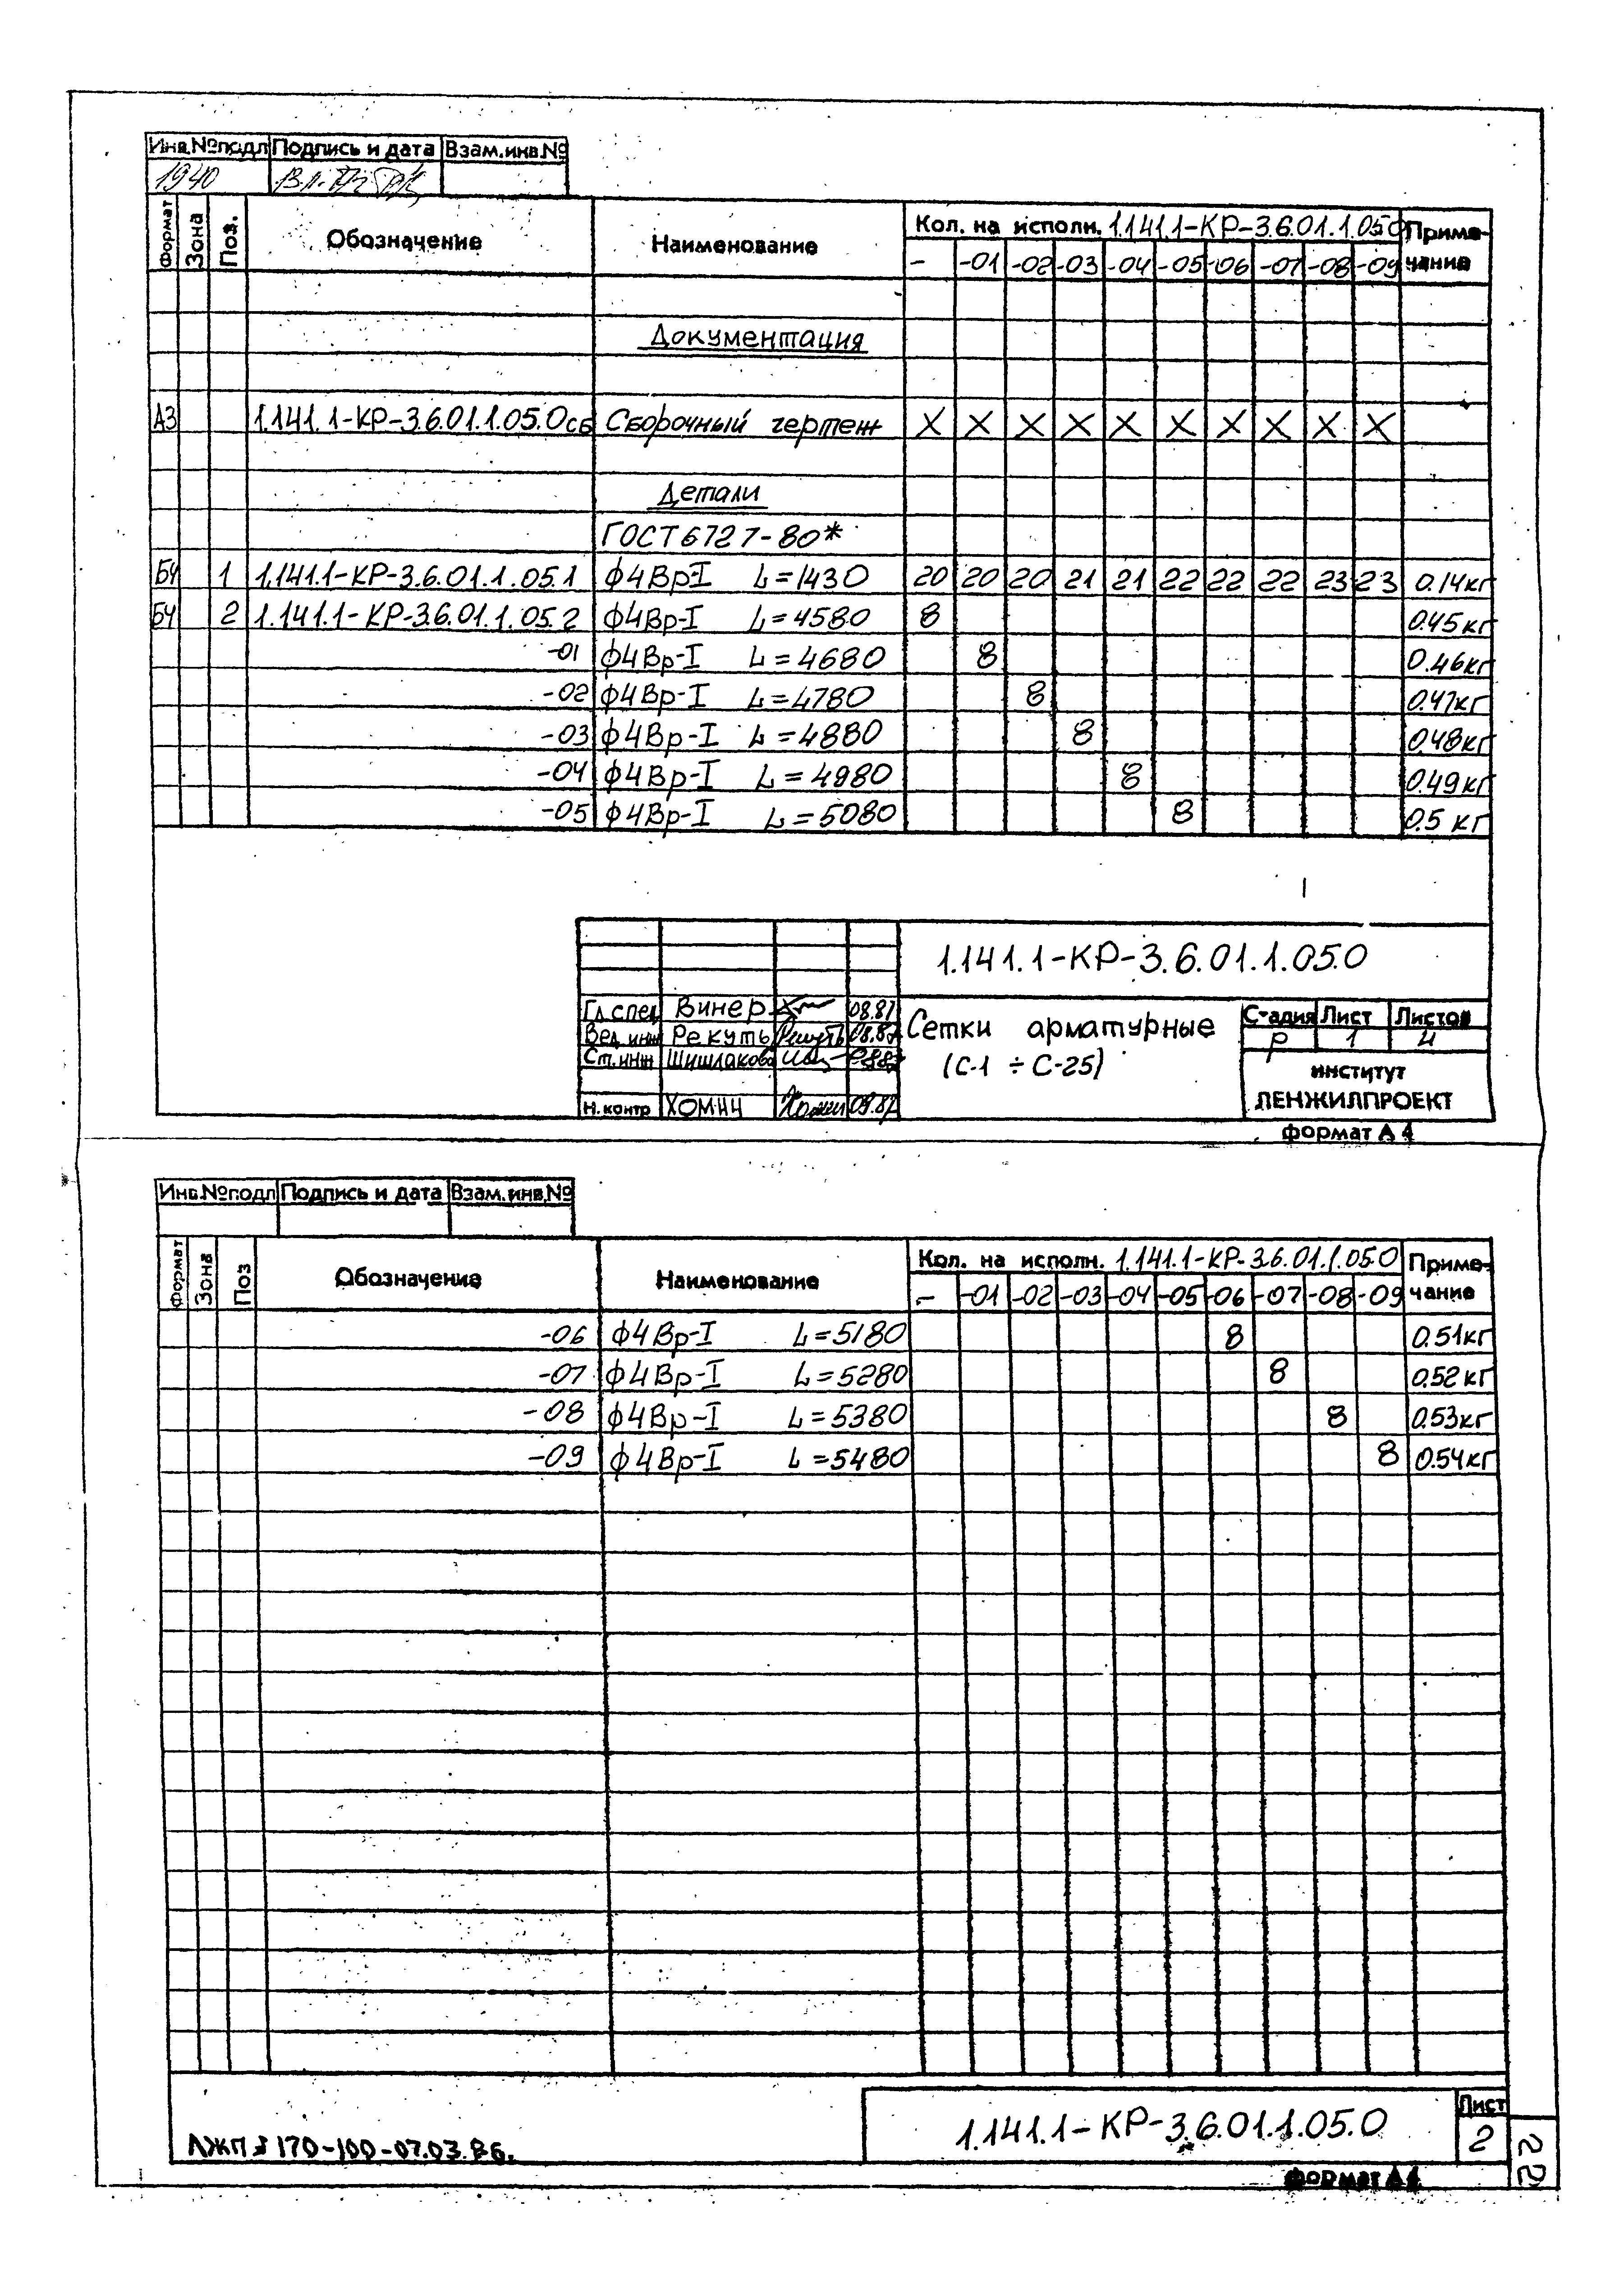 Инв.№подл Подпись и дата Взам.инв.№
1940
Формат Зона Поз. Обозначение Наименование Кол. на исполн. 1.141.1-КР-3.6.01.1.05.0 Приме-
- -01 -02 -03 -04 -05 -06 -07 -08 -09 чание
Документация
А3 1.141.1-КР-3.6.01.1.05.0сб Сборочный чертеж X X X X X X X X X X
Детали
ГОСТ 6727-80*
БЧ 1 1.141.1-КР-3.6.01.1.05.1 ф4Вр-I L=1430 20 20 20 21 21 22 22 22 23 23 0.14кг
БЧ 2 1.141.1-КР-3.6.01.1.05.2 ф4Вр-I L=4580 8 0.45кг
-01 ф4Вр-I L=4680 8 0.46кг
-02 ф4Вр-I L=4780 8 0.47кг
-03 ф4Вр-I L=4880 8 0.48кг
-04 ф4Вр-I L=4980 8 0.49кг
-05 ф4Вр-I L=5080 8 0.5 кг
1.141.1-КР-3.6.01.1.05.0
Гл.спец Винер 08.87
Вед.инж Рекуть 08.87
Ст.инж Шишлакова
Н.контр ХОМИЧ 09.87
Сетки арматурные
(С-1 ÷ С-25)
Стадия Лист Листов
Р 1 4
институт
ЛЕНЖИЛПРОЕКТ
формат А4
Инв.№подл Подпись и дата Взам.инв.№
Формат Зона Поз Обозначение Наименование Кол. на исполн. 1.141.1-КР-3.6.01.1.05.0 Приме-
- -01 -02 -03 -04 -05 -06 -07 -08 -09 чание
-06 ф4Вр-I L=5180 8 0.51кг
-07 ф4Вр-I L=5280 8 0.52кг
-08 ф4Вр-I L=5380 8 0.53кг
-09 ф4Вр-I L=5480 8 0.54кг
1.141.1-КР-3.6.01.1.05.0
Лист
2
170-100-07.03.86.
формат А4
22